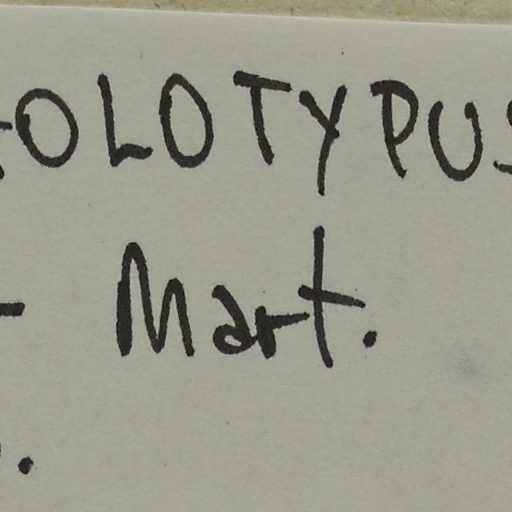 HOLOTYPUS
Mart.